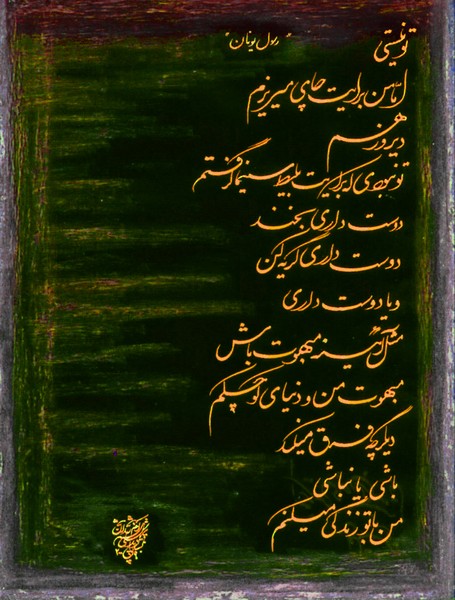 تو نیستی
"رسول یونان"
اما من برایت چای میریزم
دیروز هم
تو نبودی که برایت بلیط سینما گرفتم
دوست داری بخند
دوست داری گریه کن
و یا دوست داری
مثل آینه مبهوت باش
مبهوت من و دنیای کوچکم
دیگر چه فرق میکند
باشی یا نباشی
من با تو زندگی میکنم